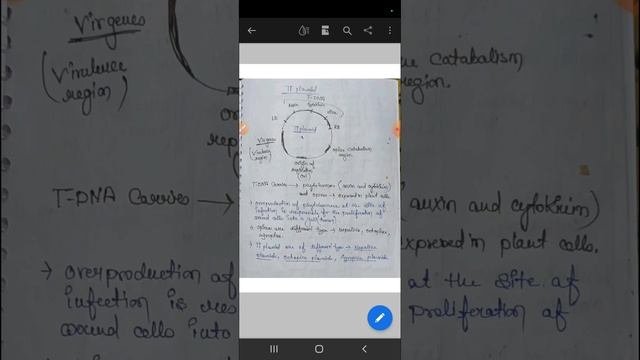 Vir genes
(Virulence
region)
T-DNA Carries
→ overproduction of
infection is
wound cells into
Ti plasmid
T-DNA
Auxin
Cytokinin
LB
RB
Ti plasmid
Vir genes
(Virulence
region)
opine catabolism
region.
origin of
replication
(ori)
T-DNA Carries → phytohormone (auxin and cytokinin)
and opine → expressed in plant cells.
→ overproduction of phytohormones at the site of
infection is responsible for the proliferation of
wound cells into a gall (tumor)
→ opines are different type → nopaline, octopine,
agropine.
→ Ti plasmid are of different type → Nopaline
plasmid, Octopine plasmid, Agropine plasmid
catabolism
region.
auxin and cytokinin)
expressed in plant cells.
at the site of
proliferation of